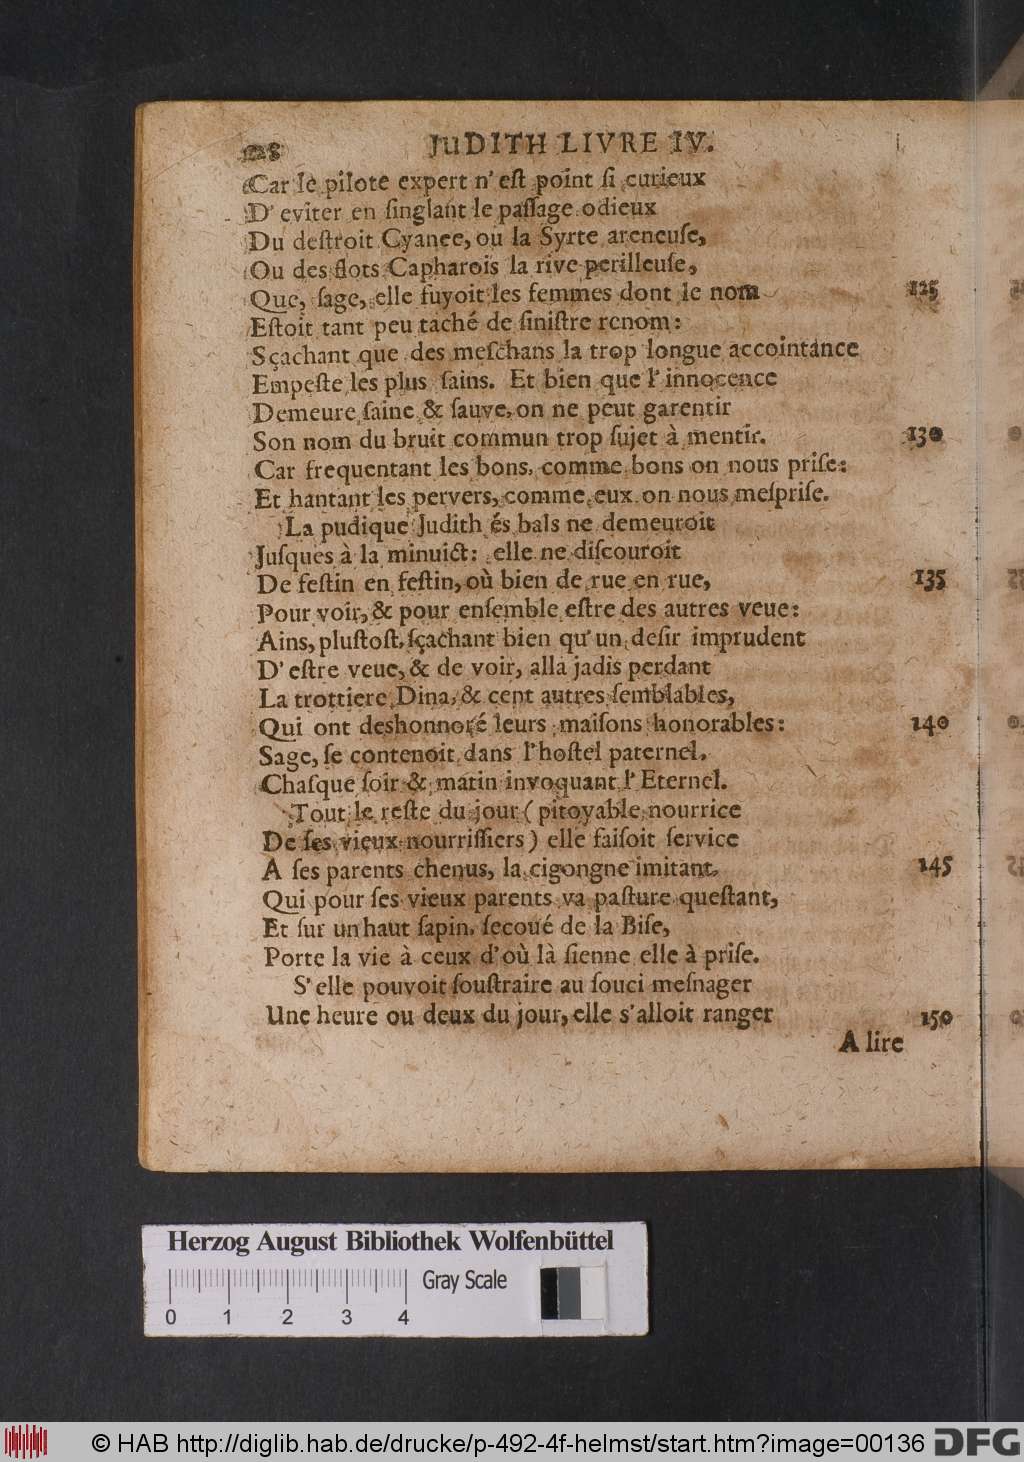 128 JUDITH LIVRE IV.
Car le pilote expert n'eſt point ſi curieux
D'eviter en ſinglant le paſſage odieux
Du deſtroit Cyanee, ou la Syrte areneuſe,
Ou des flots Capharois la rive perilleuſe,
Que, ſage, elle fuyoit les femmes dont le nom 125
Eſtoit tant peu taché de ſiniſtre renom:
Sçachant que des meſchans la trop longue accointance
Empeſte les plus ſains. Et bien que l'innocence
Demeure ſaine & ſauve, on ne peut garentir
Son nom du bruit commun trop ſujet à mentir. 130
Car frequentant les bons, comme bons on nous priſe:
Et hantant les pervers, comme eux on nous meſpriſe.
La pudique Judith és bals ne demeuroit
Juſques à la minuict: elle ne diſcouroit
De feſtin en feſtin, où bien de rue en rue, 135
Pour voir, & pour enſemble eſtre des autres veue:
Ains, pluſtoſt, ſçachant bien qu'un deſir imprudent
D'eſtre veue, & de voir, alla jadis perdant
La trottiere Dina, & cent autres ſemblables,
Qui ont deshonnoré leurs maiſons honorables: 140
Sage, ſe contenoit dans l'hoſtel paternel,
Chaſque ſoir & matin invoquant l'Eternel.
Tout le reſte du jour (pitoyable nourrice
De ſes vieux nourriſſiers) elle faiſoit ſervice
A ſes parents chenus, la cigongne imitant, 145
Qui pour ſes vieux parents va paſture queſtant,
Et ſur un haut ſapin, ſecoué de la Biſe,
Porte la vie à ceux d'où là ſienne elle à priſe.
S'elle pouvoit ſouſtraire au ſouci meſnager
Une heure ou deux du jour, elle s'alloit ranger 150
A lire
Herzog August Bibliothek Wolfenbüttel
Gray Scale
0 1 2 3 4
© HAB http://diglib.hab.de/drucke/p-492-4f-helmst/start.htm?image=00136 DFG